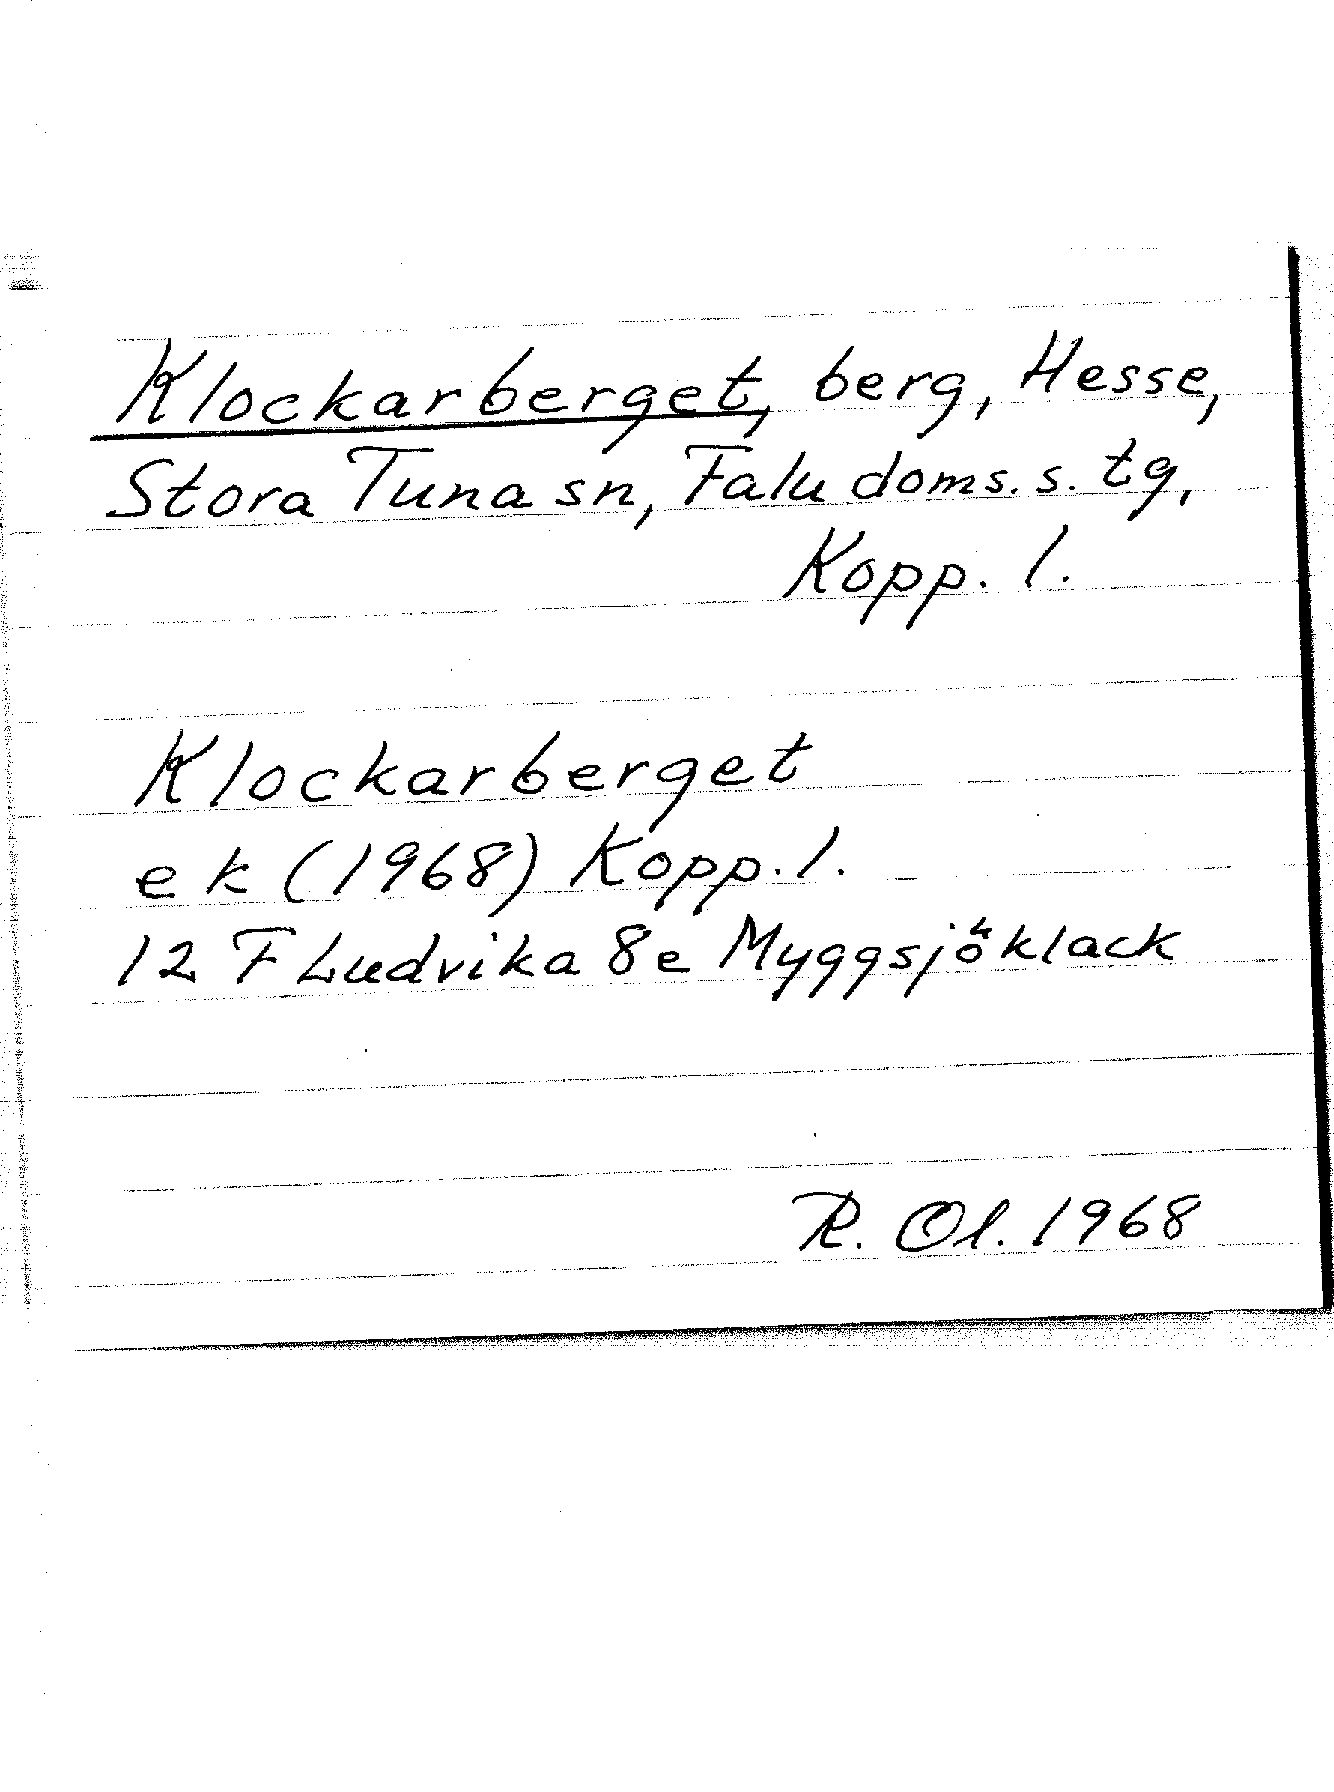 Klockarberget, berg, Hesse,
Stora Tuna sn, Falu doms. s. tg,
Kopp. l.
Klockarberget
ek (1968) Kopp. l.
12 F Ludvika 8e Myggsjöklack
R. Ol. 1968